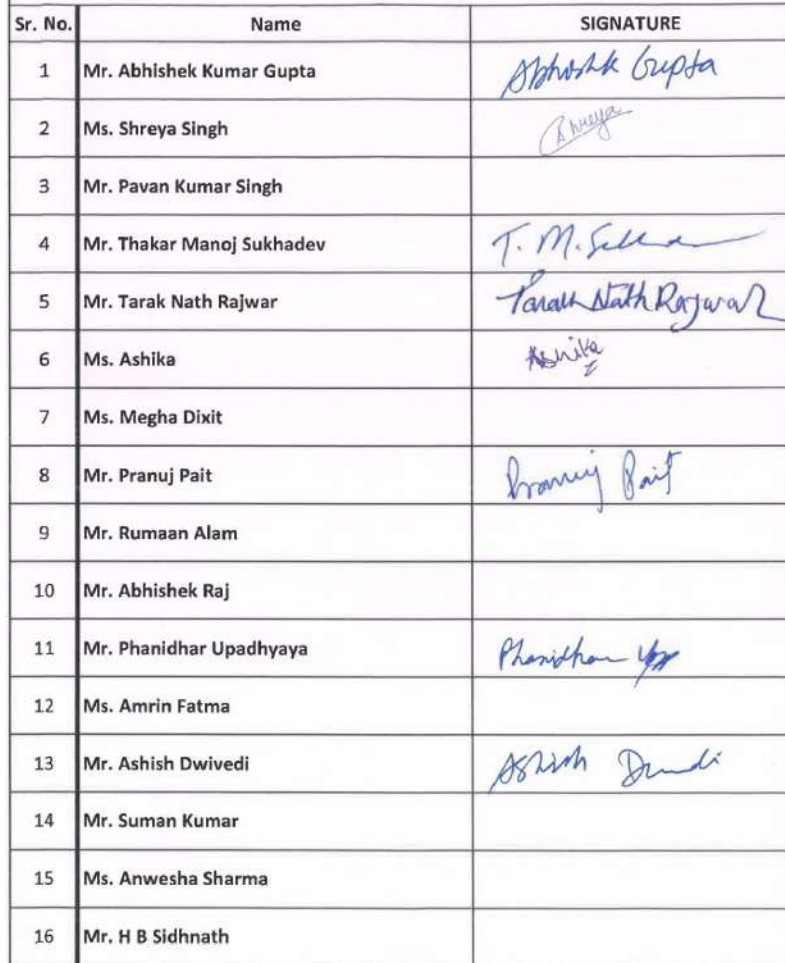 Sr. No. Name SIGNATURE
1 Mr. Abhishek Kumar Gupta Abhishk Gupta
2 Ms. Shreya Singh Shreya
3 Mr. Pavan Kumar Singh
4 Mr. Thakar Manoj Sukhadev T. M.
5 Mr. Tarak Nath Rajwar Tarak Nath Rajwar
6 Ms. Ashika Ashika
7 Ms. Megha Dixit
8 Mr. Pranuj Pait Pranuj Pait
9 Mr. Rumaan Alam
10 Mr. Abhishek Raj
11 Mr. Phanidhar Upadhyaya Phanidhar
12 Ms. Amrin Fatma
13 Mr. Ashish Dwivedi Ashish
14 Mr. Suman Kumar
15 Ms. Anwesha Sharma
16 Mr. H B Sidhnath